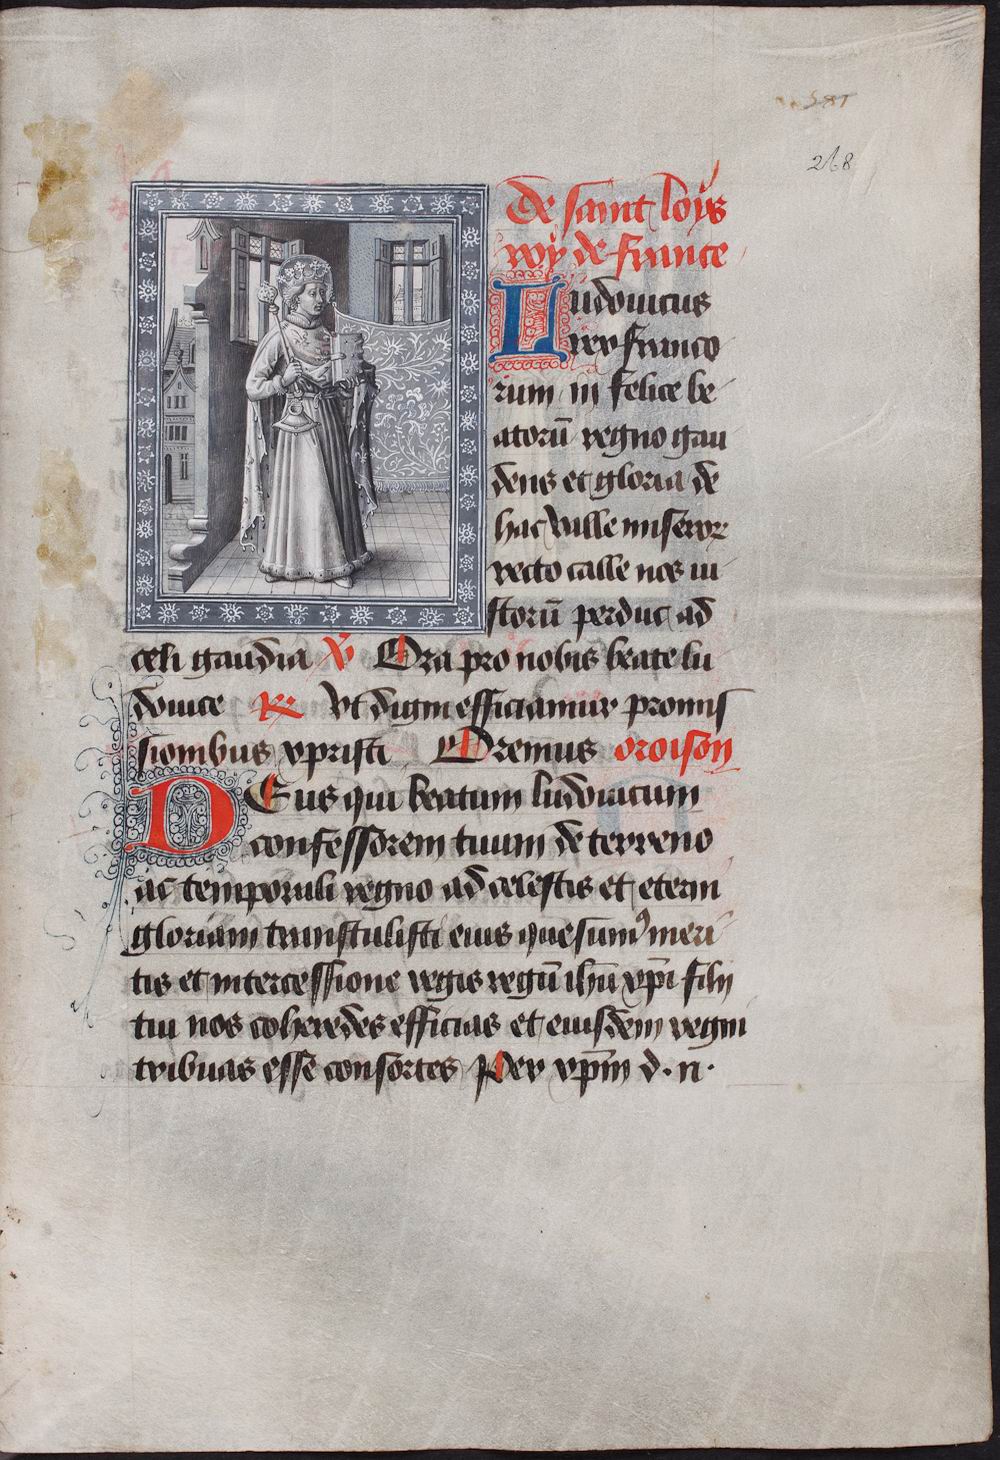 581
268
De saint loys
roy de france
Ludouicus
rex franco
rum in felice be
atorū regno gau
dens et gloria de
hac valle miseror
recto calle nos iu
storū perduc ad
celi gaudia V Ora pro nobis beate lu
douice R Vt digni efficiamur promis
sionibus xpristi Oremus oroison
DEus qui beatum ludouicum
confessorem tuum de terreno
ac temporali regno ad celestis et eterni
gloriam transtulisti eius quesumꝰ meri
tis et intercessione regis regū ihū xpi filij
tui nos coheredes efficias et eiusdem regni
tribuas esse consortes Per xpm d. n.